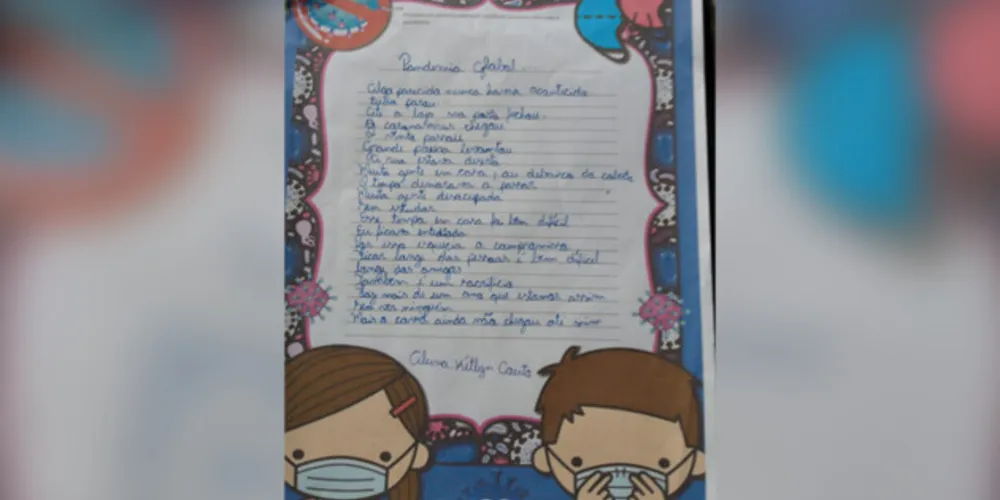 Pandemia Global
Algo parecido nunca havia acontecido
tudo parou
Até a loja sua porta fechou
O coronavirus chegou
O vento parou
Grande poeira levantou
A rua estava deserta
Muita gente em casa, ou debaixo da coberta
O tempo demorava a passar
Muita gente desocupada
Sem estudar
Esse tempo em casa foi bem dificil
Eu ficava entediada
Por isso esquecia o compromisso
Ficar longe das pessoas é bem dificil
longe dos amigos
Também é um sacrificio
Faz mais de um ano que estamos assim
Sem ver ninguém
Mais o carro ainda não chegou até mim
Aluna Kétlyn Couto